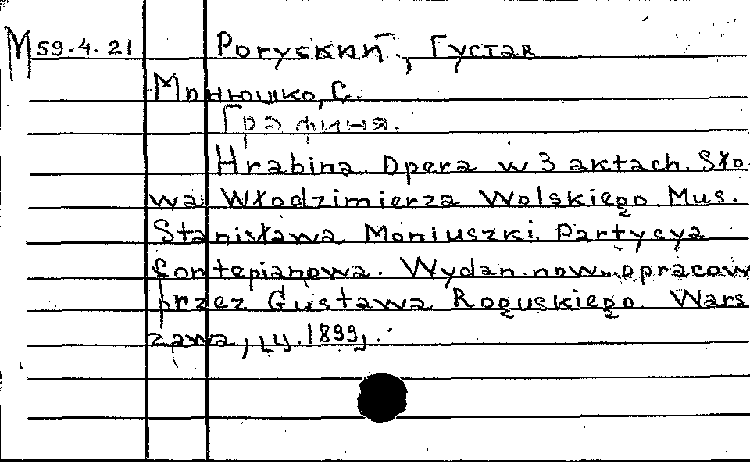 М 59.4.21 Рогуский, Густав
Монюшко, С.
Графиня.
Hrabina Opera w 3 aktach. Sło-
wa Włodzimierza Wolskiego Mus.
Stanisława Moniuszki. Partycya
fortepianowa. Wydan. now. opracow
przez Gustawa Roguskiego. Wars
zawa, ц. 1899,.